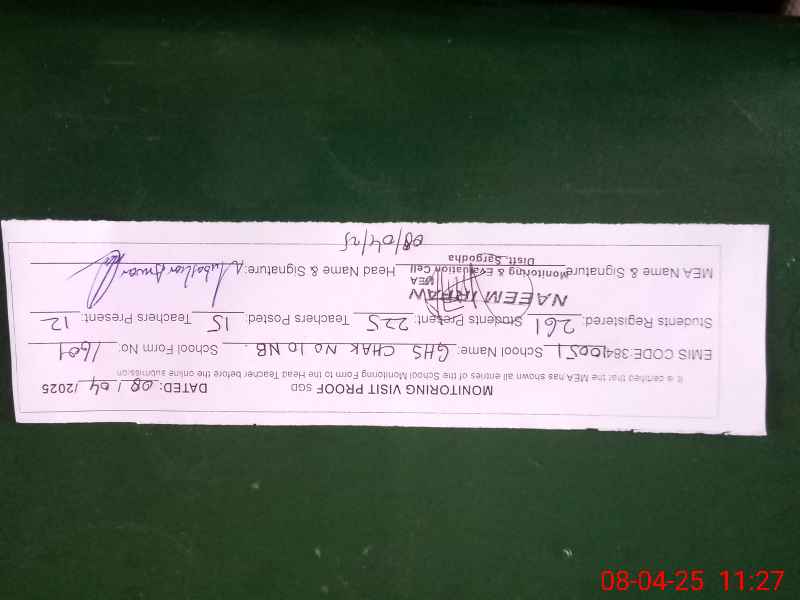 MONITORING VISIT PROOF SGD DATED: 08 / 04 /2025
It is certified that the MEA has shown all entries of the School Monitoring Form to the Head Teacher before the online submission
EMIS CODE:384 10051 School Name: GHS CHAK No 10 NB. School Form No: 1609
Students Registered: 261 Students Present: 225 Teachers Posted: 15 Teachers Present: 12
NAEEM
MEA
MEA Name & Signature Monitoring & Evaluation Cell Head Name & Signature:
Distt. Sargodha
08/04/25
08-04-25 11:27